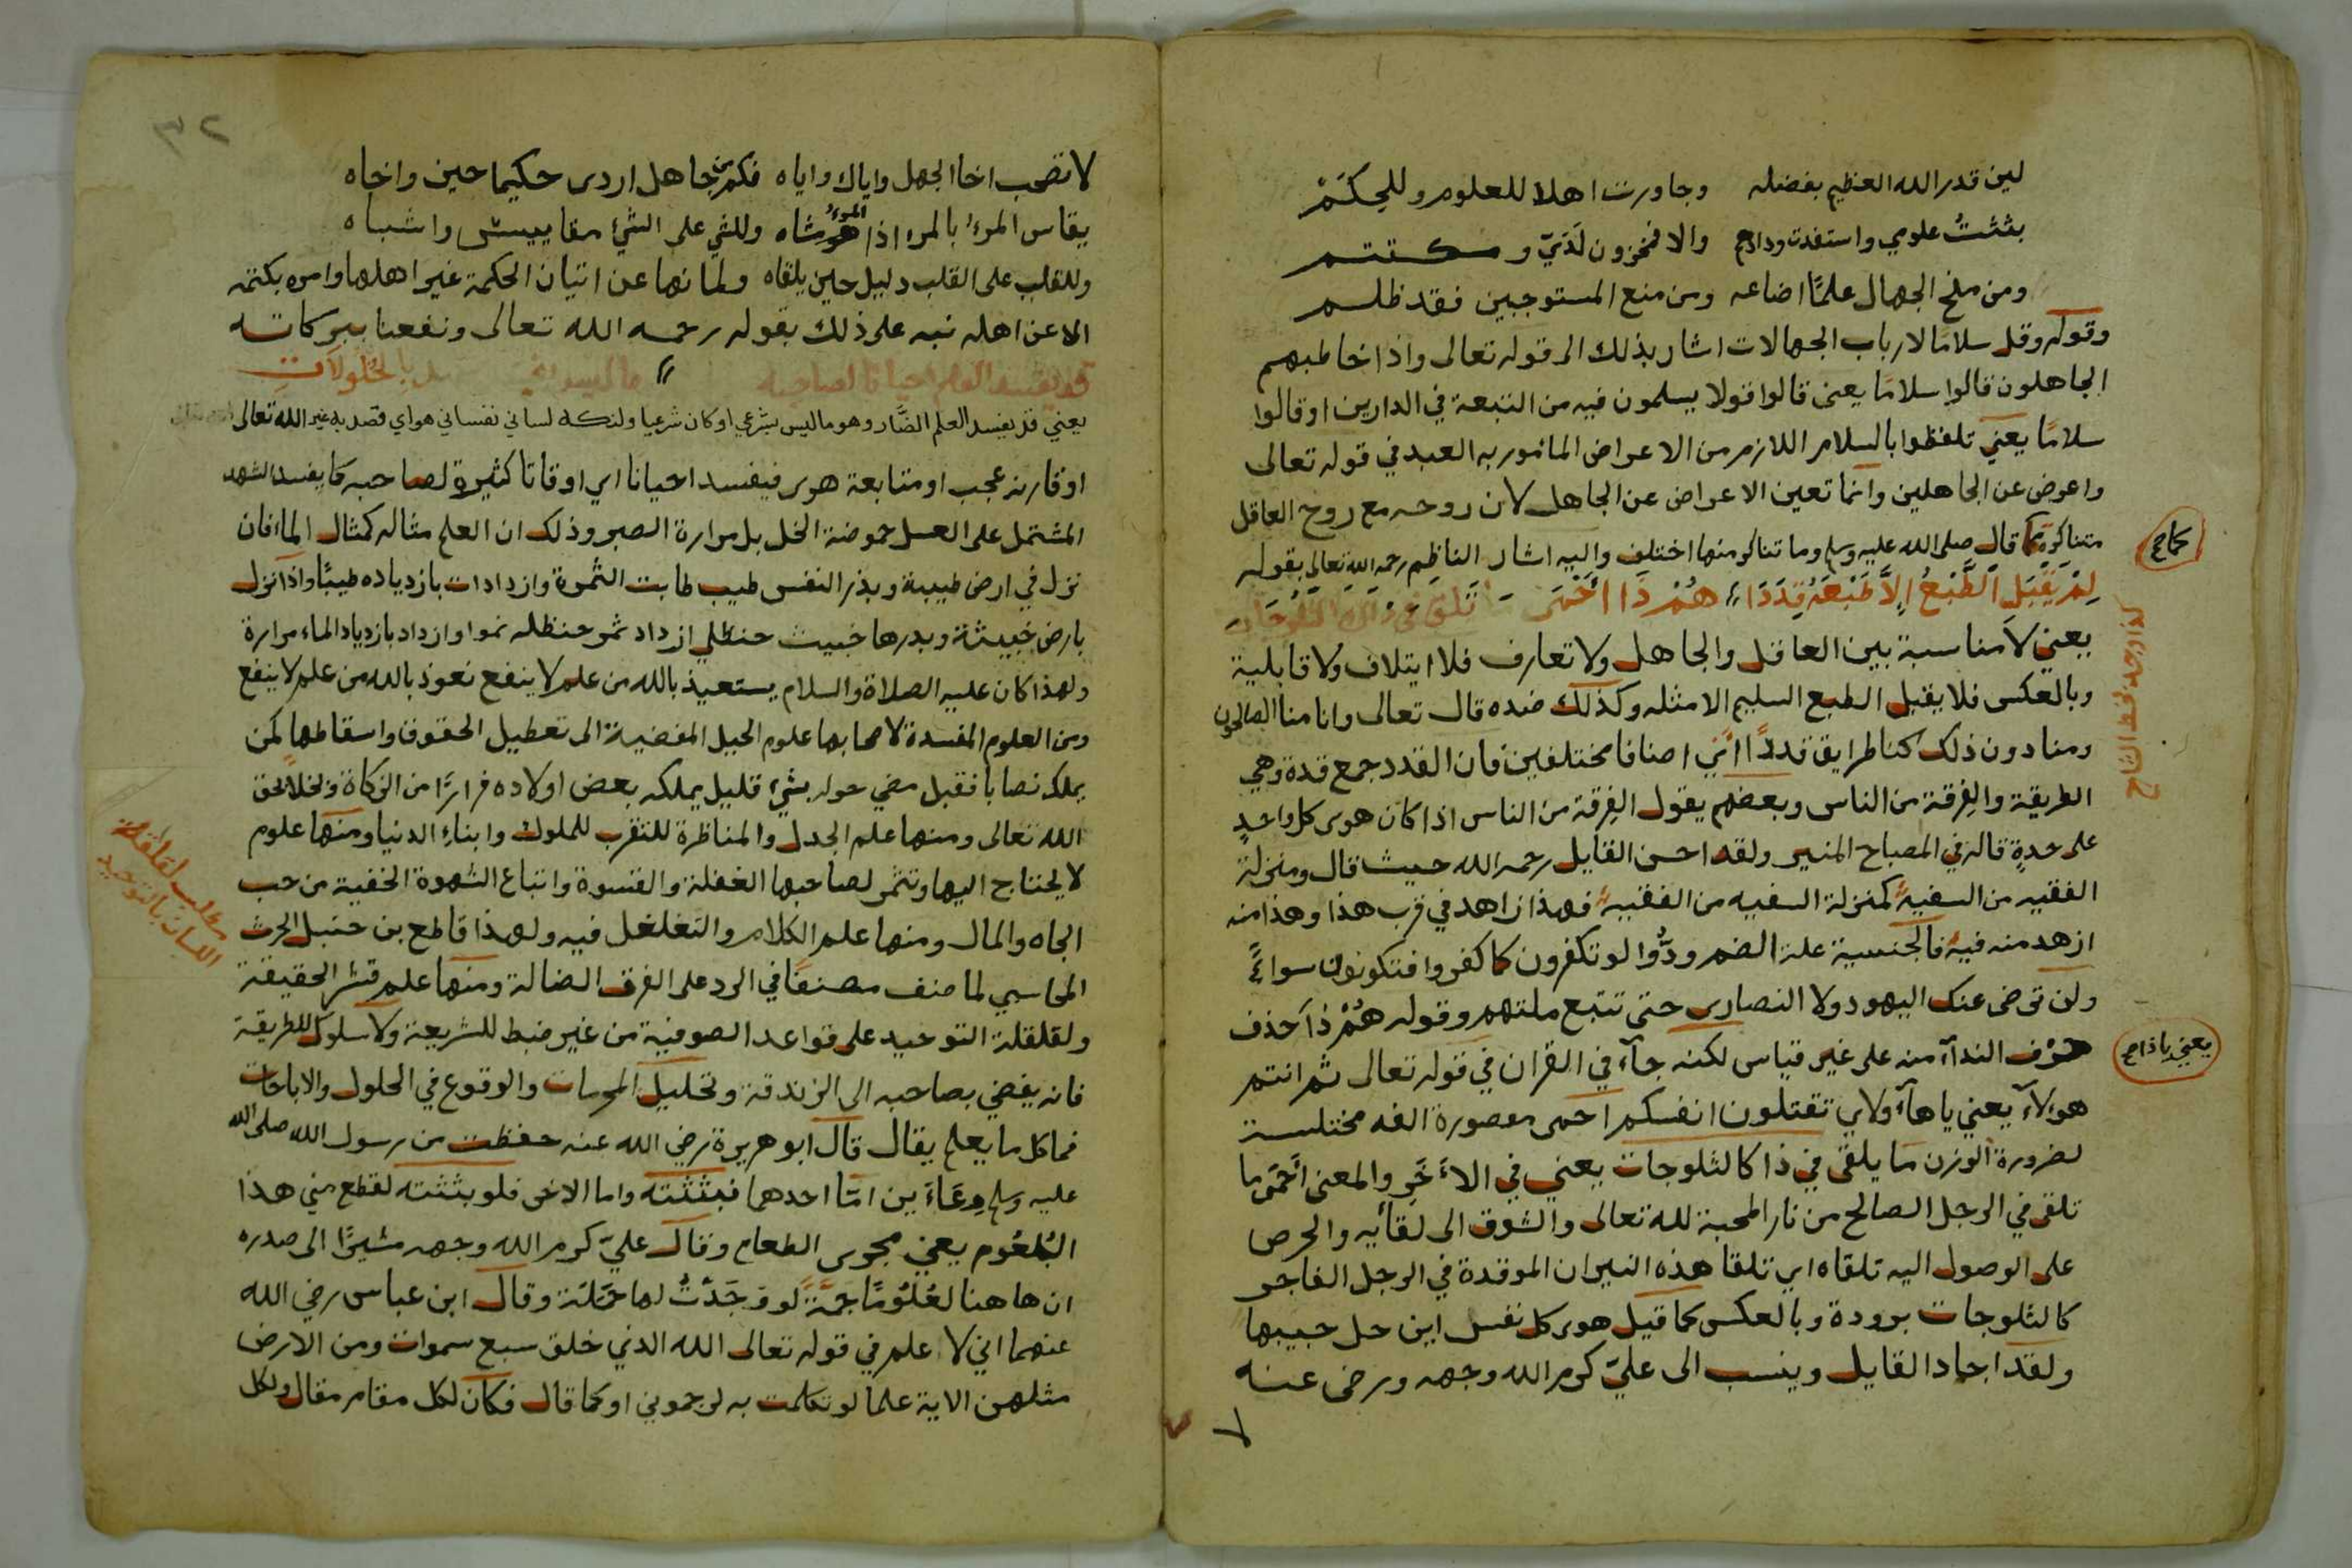 لين قدر الله العظيم بفضله وجاورت اهلا للعلوم وللحكم
بثثت علومي واستفدت ودادهم والا فمخزون لدي ومكتتم
ومن منح الجهال علمًا اضاعه ومن منع المستوجبين فقد ظلم
وقوله وقل سلاما لارباب الجهالات اشار بذلك الى قوله تعالى واذا خاطبهم
الجاهلون قالوا سلامًا يعنى قالوا قولا يسلمون فيه من التبعة في الدارين او قالوا
سلامًا يعني تلفظوا بالسلام اللازم من الاعراض المامور به العبد في قوله تعالى
واعرض عن الجاهلين وانما تعين الاعراض عن الجاهل لان روحه مع روح العاقل
متناكرة كما قال صلى الله عليه وسلم وما تناكر منها اختلف واليه اشار الناظم رحمه الله تعالى بقوله
كما صح
لم يقبل الطبع الا طبعه قددا هم ذا احمى تلقى في
كذا وجد بخط الشارح
يعني لا مناسبة بين العاقل والجاهل ولا تعارف فلا ايتلاف ولا قابلية
وبالعكس فلا يقبل الطبع السليم الا مثله وكذلك ضده قال تعالى وانا منا الصالحون
ومنا دون ذلك كنا طرايق قددًا اي اصنافا مختلفين فان القدد جمع قدة وهي
الطريقة والفرقة من الناس وبعضهم يقول الفرقة من الناس اذا كان هوى كل واحد
على حدة قاله في المصباح المنير ولقد احسن القايل رحمه الله حيث قال ومنزلة
الفقيه من السفيه كمنزلة السفيه من الفقيه فهذا زاهد في قرب هذا وهذا منه
ازهد منه فيه فالجنسية علة الضم ودُّوا لو تكفرون كما كفروا فتكونون سواءً
ولن ترضى عنك اليهود ولا النصارى حتى تتبع ملتهم وقوله هُمْ ذا حذف
حرف الندآء منه على غير قياس لكنه جآء في القران في قوله تعالى ثم انتم
يعني يا ذا صح
هولآء يعني يا هآء ولاي تقتلون انفسكم احمى مقصورة الفه مختلست
لضرورة الوزن ما يلقى في ذا كالثلوجات يعني في الاخر والمعنى احمى ما
تلقى في الرجل الصالح من نار المحبة لله تعالى والشوق الى لقائه والحرص
على الوصول اليه تلقاه اي تلقا هذه النيران الموقدة في الرجل الفاجر
كالثلوجات برودة وبالعكس كما قيل هوى كل نفس اين حل حبيبها
ولقد اجاد القايل وينسب الى علي كرم الله وجهه ورضى عنه
لا
٣٢
لا تصحب اخا الجهل واياك واياه فكم من جاهل اردى حكيما حين واخاه
يقاس المرء بالمرء اذا المرء هو شاه وللشي على الشيء مقاييس واشباه
وللقلب على القلب دليل حين يلقاه ولما نها عن اتيان الحكمة غير اهلها وامره بكتمه
الا عن اهله نبه على ذلك بقوله رحمه الله تعالى ونفعنا ببركاته
قد يفسد العلم احيانا لصاحبه ما ليس بالحلولات
يعني قد يفسد العلم الضَّار وهو ما ليس بشرعي او كان شرعيا ولكنه لساني نفساني هواي قصد به غير الله تعالى
او قارنه عجب او متابعة هوى فيفسد احيانا اي اوقاتا كثيرة لصاحبه كما يفسد الشهد
المشتمل على العسل حموضة الخل بل مرارة الصبر وذلك ان العلم مثاله كمثال الما فان
نزل في ارض طيبة وبذر النفس طيب طابت الثمرة وازدادات بازدياده طيبًا واذا نزل
بارض خبيثة وبدرها خبيث حنظلي ازداد ثمر حنظله نموا وازداد بازدياد الماء مرارة
ولهذا كان عليه الصلاة والسلام يستعيذ بالله من علم لا ينفع نعوذ بالله من علم لا ينفع
ومن العلوم المفسدة لاصحابها علوم الحيل المفضية الى تعطيل الحقوق واسقاطها كمن
يملك نصابا فقبل مضي حوله بشيء قليل يملكه بعض اولاده فرارًا من الزكاة وبخلا بحق
الله تعالى ومنها علم الجدل والمناظرة للتقرب للملوك وابناء الدنيا ومنها علوم
لا يحتاج اليها وتثمر لصاحبها الغفلة والقسوة واتباع الشهوة الخفية من حب
الجاه والمال ومنها علم الكلام والتغلغل فيه ولهذا قاطع بن حنبل الحرث
المحاسبي لما صنف مصنفًا في الرد على الفرق الضالة ومنها علم قشر الحقيقة
ولقلقلة التوحيد على قواعد الصوفية من غير ضبط للشريعة ولا سلوك للطريقة
لقلقلة
اللسان بالتوحيد
فانه يفضي بصاحبه الى الزندقة وتحليل المحرمات والوقوع في الحلول والاباحات
فما كل ما يعلم يقال قال ابو هريرة رضي الله عنه حفظت من رسول الله صلى الله
عليه وسلم وعاءين امّا احدهما فبثثته واما الاخر فلو بثثته لقطع مني هذا
البُلعُوم يعني مجرى الطعام وقال علي كرم الله وجهه مشيرًا الى صدره
ان هاهنا لعُلُومًا جمةً لو وجدتُ لها حمَلَة وقال ابن عباس رضي الله
عنهما اني لاعلم في قوله تعالى الله الذي خلق سبع سموات ومن الارض
مثلهن الاية علما لو تكلمت به لرجموني او كما قال فكان لكل مقام مقال ولكل